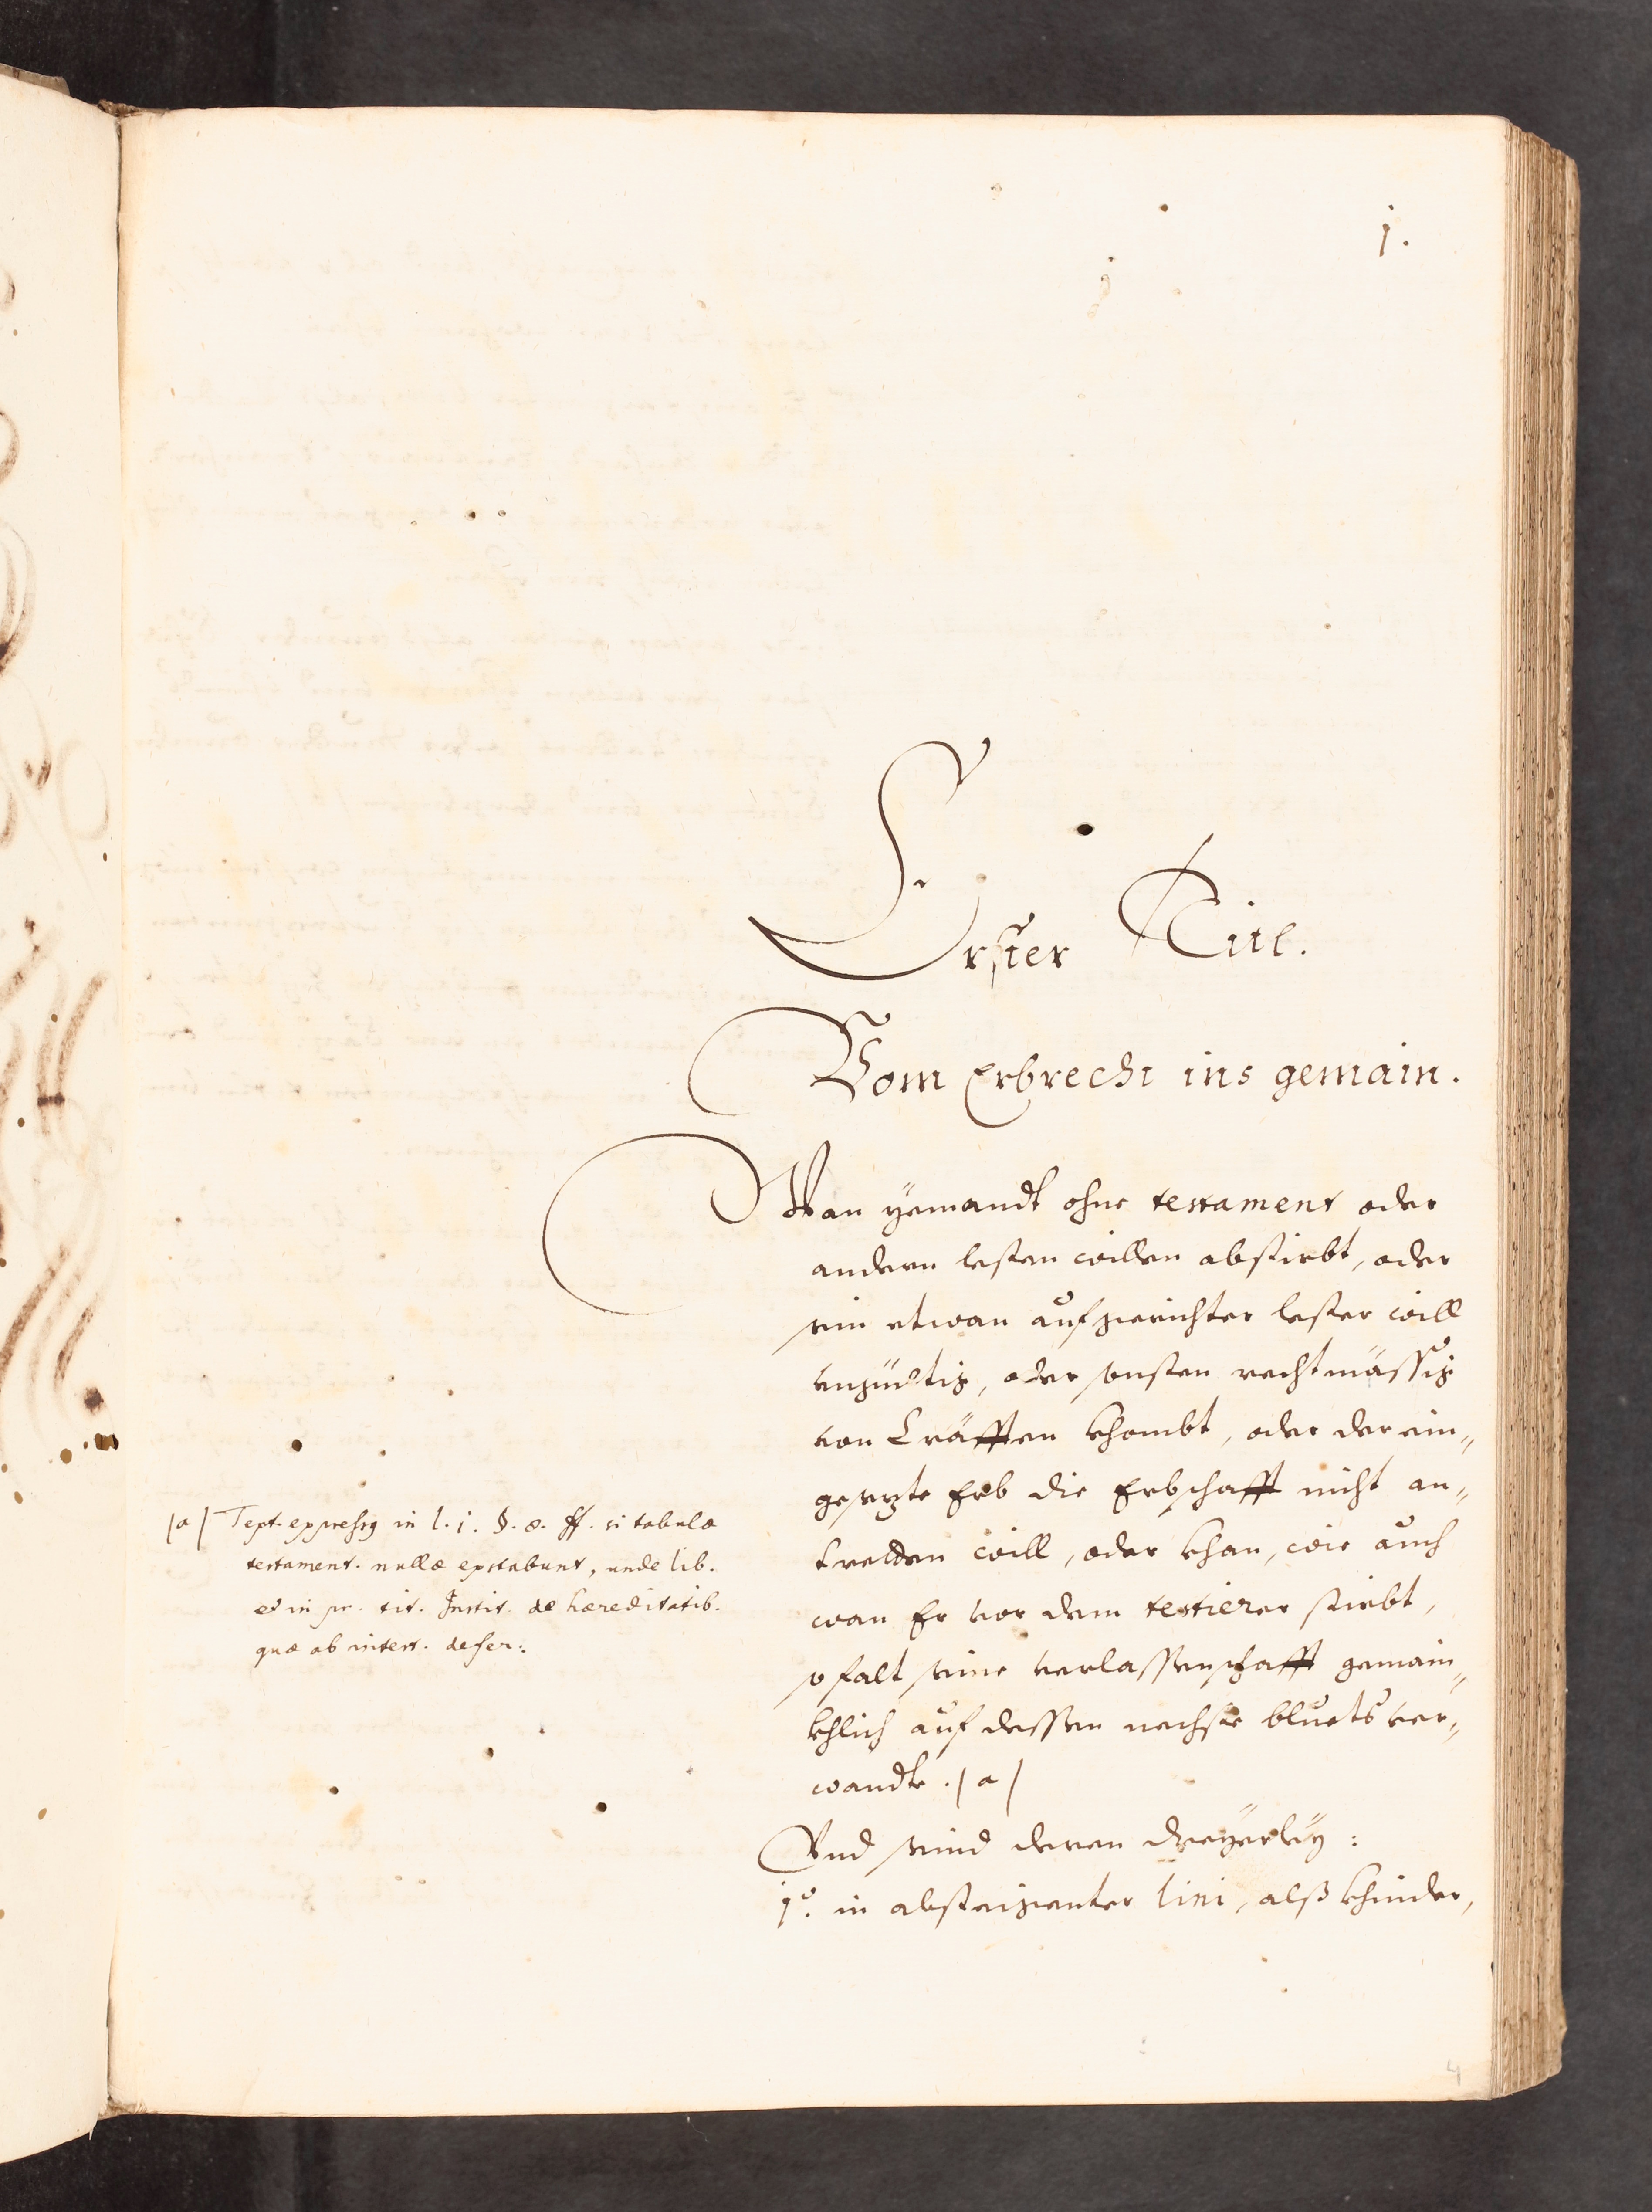 1.
Erster Titl.
Vom Erbrecht ins gemain.
Wan yemandt ohne testament oder
andern lesten willen abstirbt, oder
sein etwan aufgerichter lester will
ungültig, oder sonsten rechtmässig
von Cräfften khombt, oder der ein„
gesezte Erb die Erbschafft nicht an„
tretten will, oder khan, wie auch
wan Er vor dem testierer stirbt,
so falt seine verlassenschafft gemain„
khlich auf dessen nechste bluets ver„
wandte. /a/
Und seind deren dreyerley:
1.º in absteigenter lini, alß khinder,
/a/ Text. expressus in l. 1. §. ff. si tabulæ
testament. nullæ extabunt, unde lib.
et in pr. tit. Instit. de hæreditatib.
quæ ab intest. defer:
4